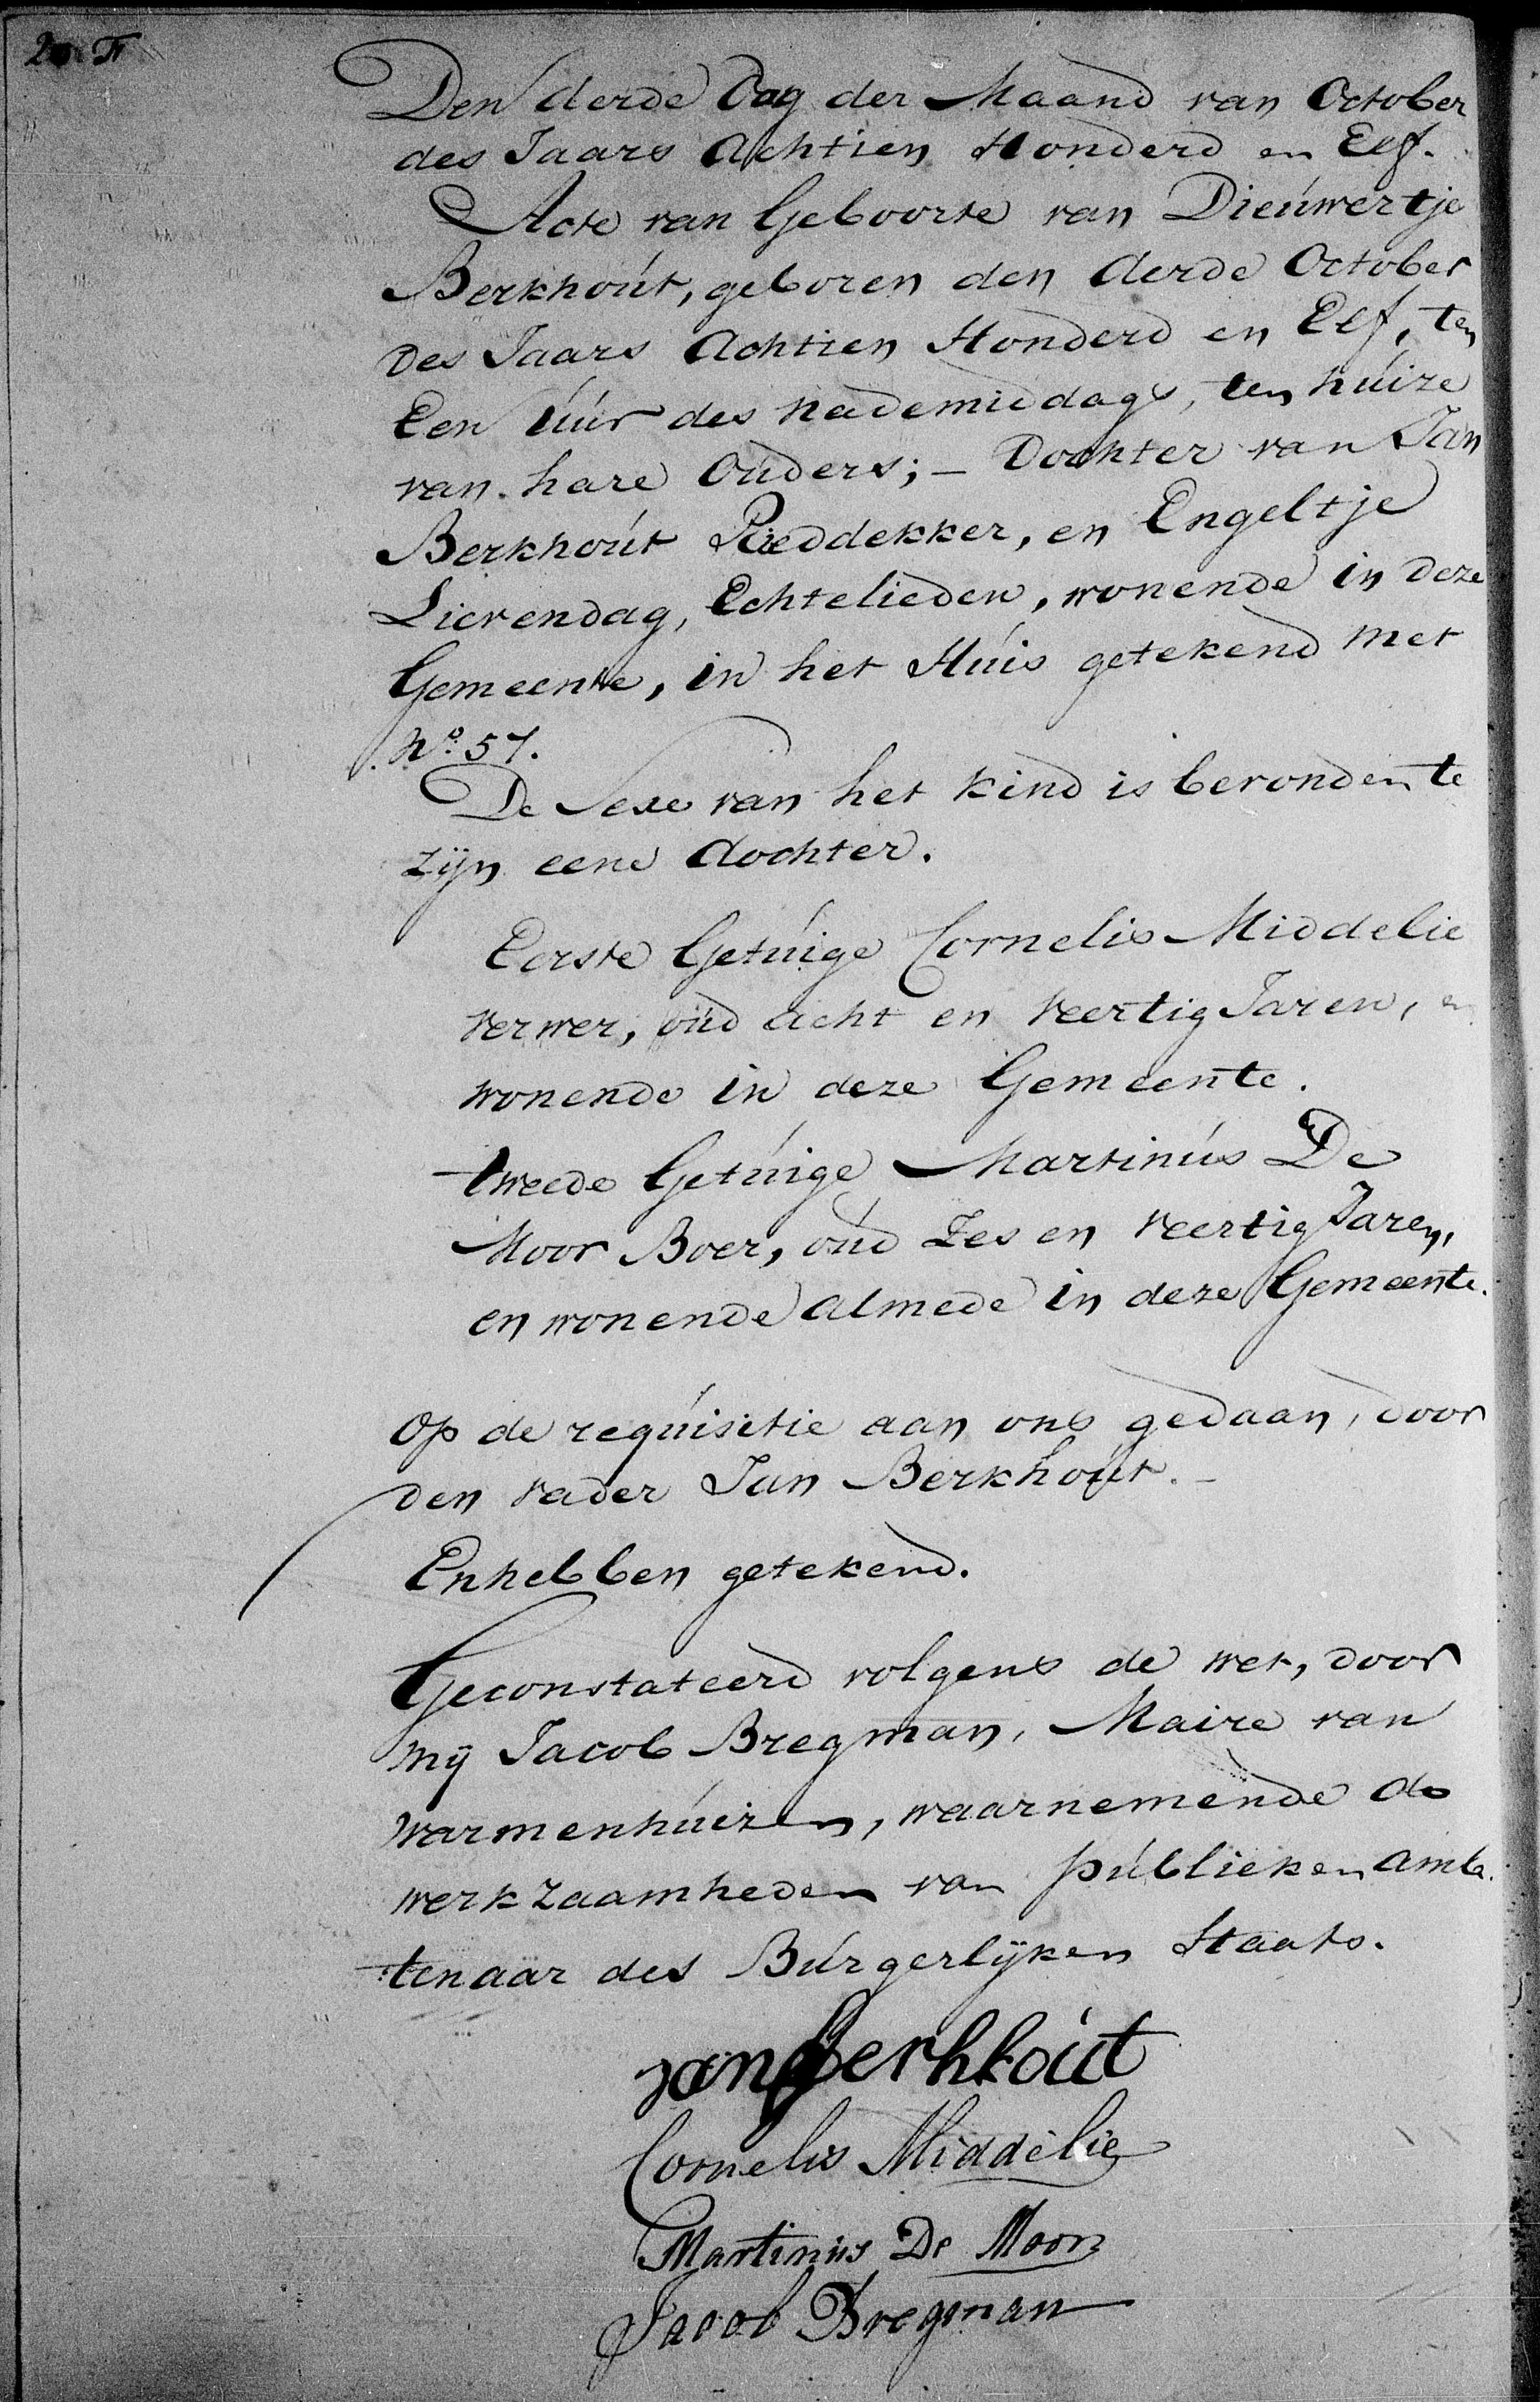 Den derde Dag der Maand van October
des Jaars Achtien Honderd en Elf.
Acte van Geboorte van Dieúwertje
Berkhoút, geboren den derde October
des Jaars Achtien Honderd en Elf, ten
Een úúr des nademiddags, ten húize
van hare Oúders; – Dochter van Jan
Berkhoút Rieddekker, en Engeltje
Lievendag, Echtelieden, wonende in deze
Gemeente, in het Húis getekend met
No. 57.
De Sexe van het kind is bevonden te
zijn eene dochter.
Eerste Getúige Cornelis Middelie
verwer, oúd acht en veertig Jaren, en
wonende in deze Gemeente.
tweede Getúige Martinús De
Moor Boer, oúd Zes en veertig Jaren,
en wonende almede in deze Gemeente.
Op de reqúisitie aan ons gedaan, door
den vader Jan Berkhoút. –
En hebben getekend.
Geconstateerd volgens de wet, door
mij Jacob Bregman, Maire van
Warmenhúizen, waarnemende de
werkzaamheden van públieken amb
tenaar des Búrgerlijken Staats.
Jan Berkhoút
Cornelis Middelie
Martinús De Moor
Jacob Bregman